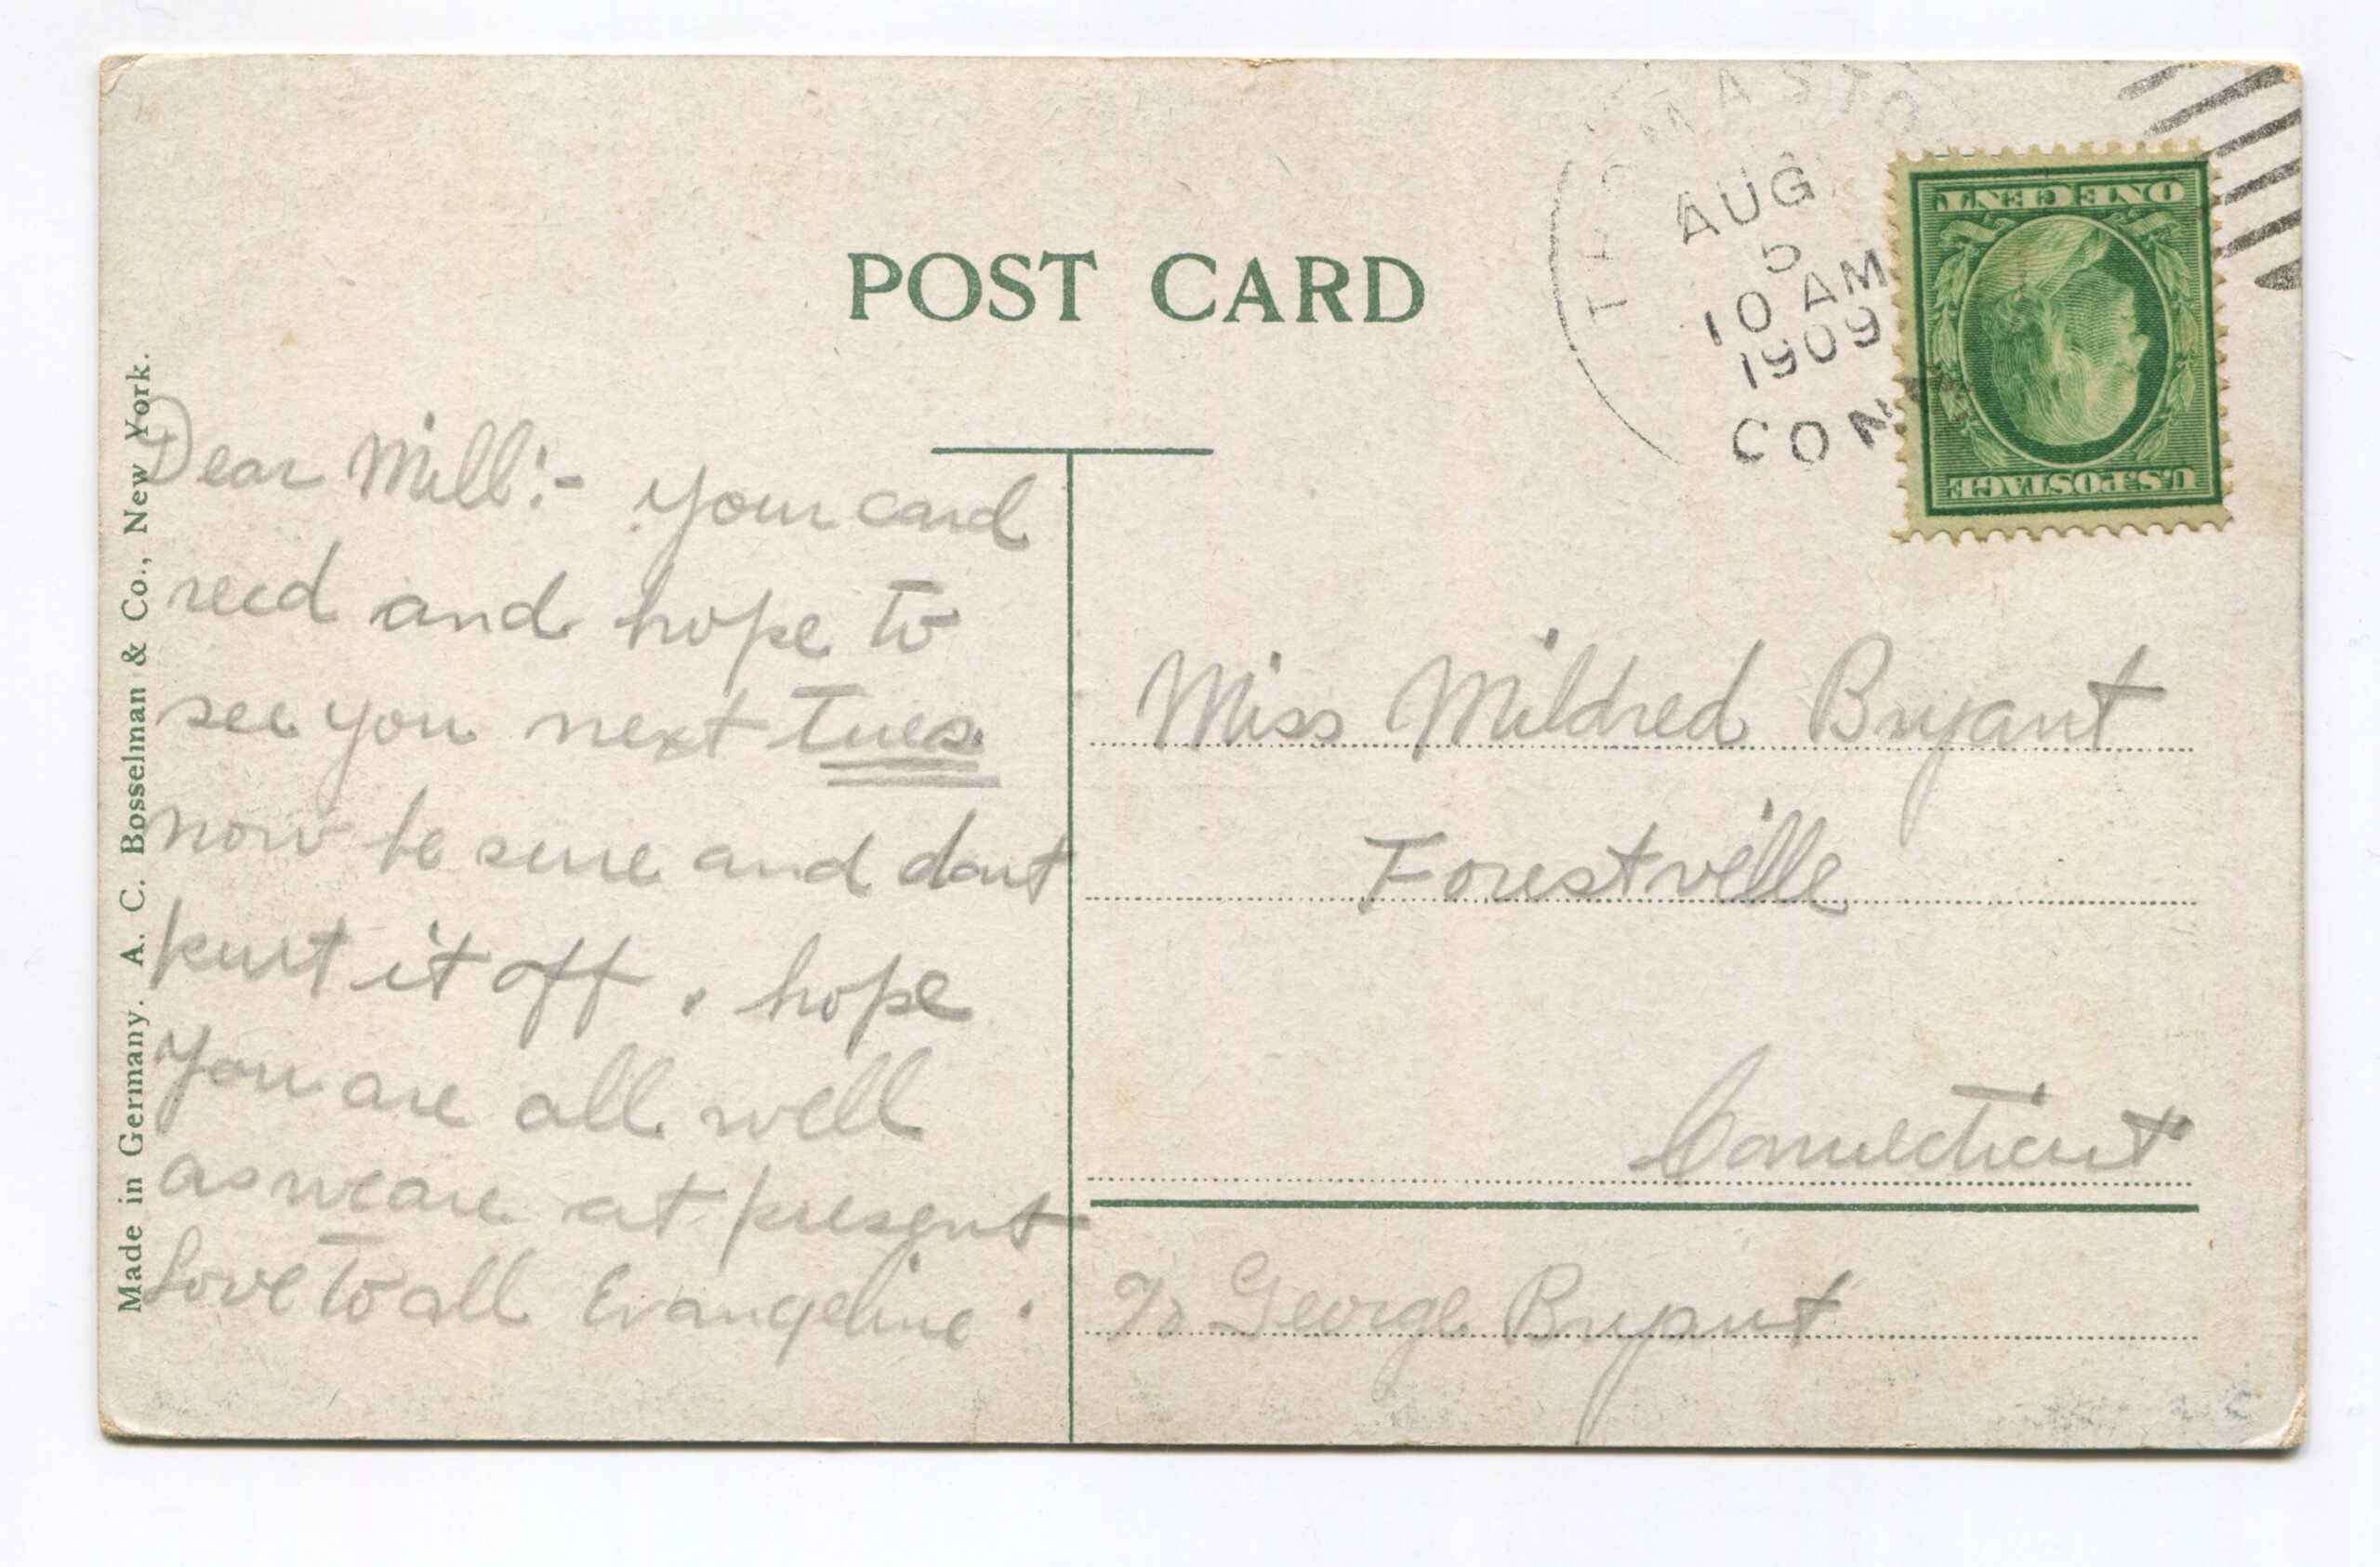 POST CARD
THOMASTO
AUG
5
10 AM
1909
CONN
ONE CENT
U.S. POSTAGE
Made in Germany. A. C. Bosselman & Co., New York.
Dear Mill:- Your card
recd and hope to
see you next Tues.
now be sure and dont
put it off. hope
You are all well
as we are at present
Love to all Evangeline.
Miss Mildred Bryant
Forestville
Connecticut
℅ George Bryant